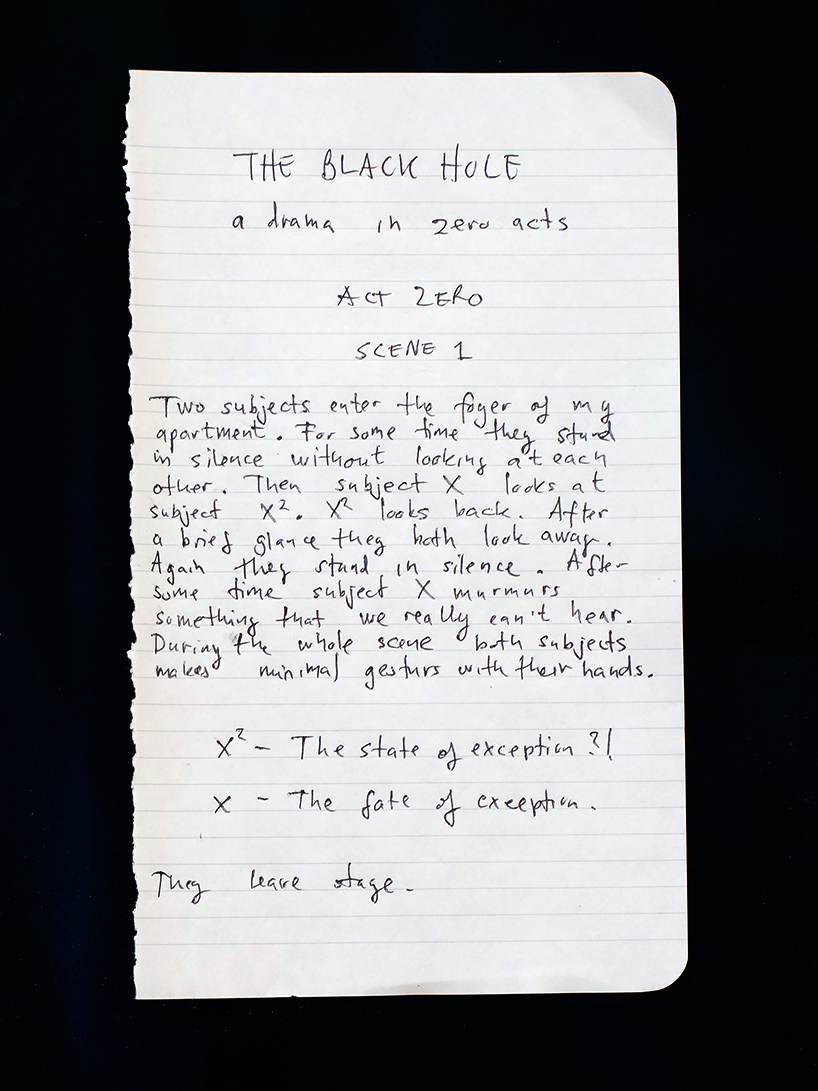 THE BLACK HOLE
a drama in zero acts
ACT ZERO
SCENE 1
Two subjects enter the foyer of my
apartment. For some time they stand
in silence without looking at each
other. Then subject X looks at
subject X². X² looks back. After
a brief glance they both look away.
Again they stand in silence. After
some time subject X murmurs
something that we really can't hear.
During the whole scene both subjects
makes minimal gesturs with their hands.
X² – The state of exception?!
X – The fate of exception.
They leave stage.